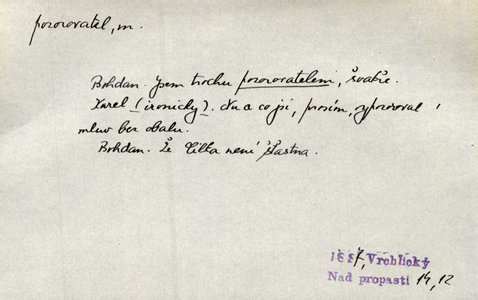 pozorovatel, m.
Bohdan. Jsem trochu pozorovatelem, švakře.
Karel (ironicky). Nu a co jsi, prosím, vypozoroval?
mluv bez obalu.
Bohdan. Že Litka není šťastna.
1887, Vrchlický
Nad propastí 14, 12